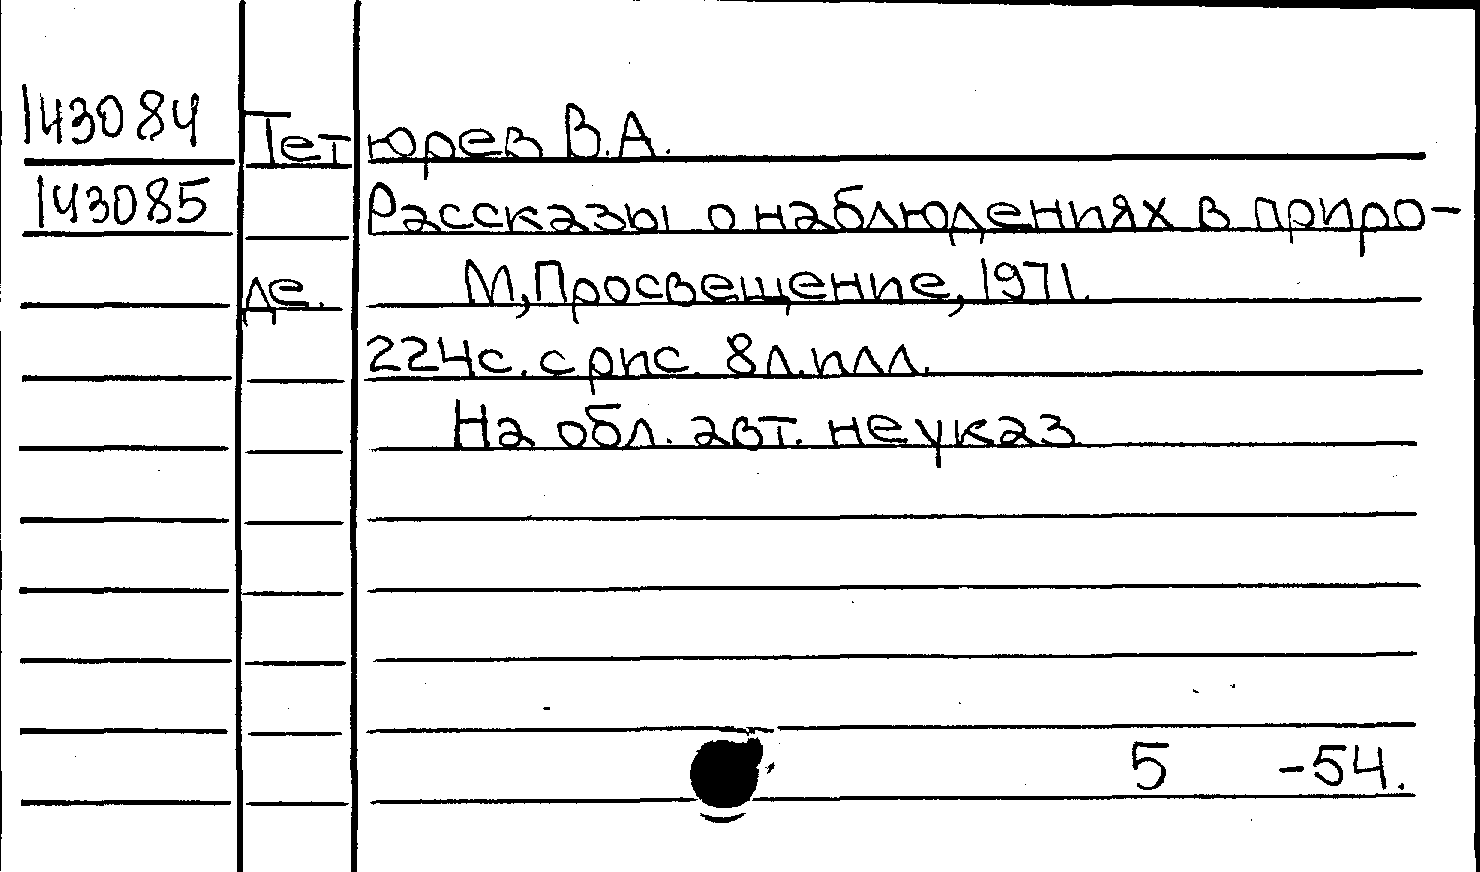 143084 Тетюрев В.А.
143085 Рассказы о наблюдениях в приро-
де. М, Просвещение, 1971.
224с. с рис. 8 л. илл.
На обл. авт. не указ
5 -54.